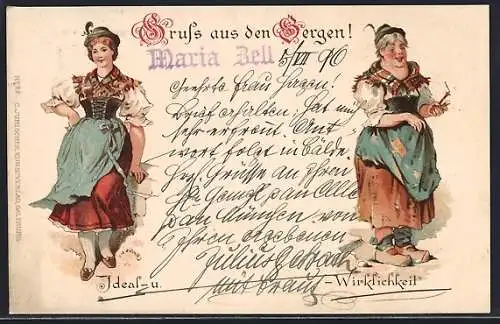 Gruss aus den Bergen!
Maria Zell 5/VII 96
Geehrte Frau Hagen!
Brief erhalten. Hat mich
sehr erfreut. Ant
wort folgt in Bälde.
Grüsse an Ihren
Gemahl an Alle
aus München von
Ihrem ergebenen
Julius
mit Braut
Ideal-u.
-Wirklichkeit